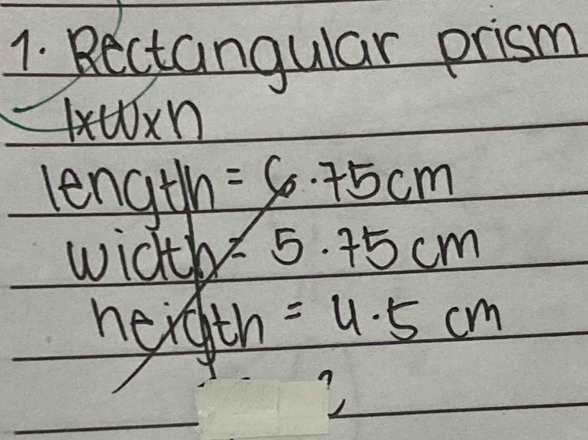 1. Rectangular prism
- l×w×h
length = 6.75cm
width = 5.75 cm
heigth = 4.5 cm